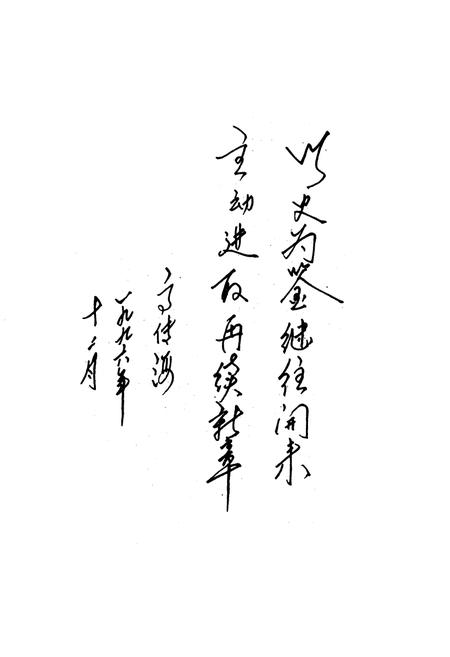 以史为鉴继往开来
主动进取再续新章
高传海
一九九六年
十二月